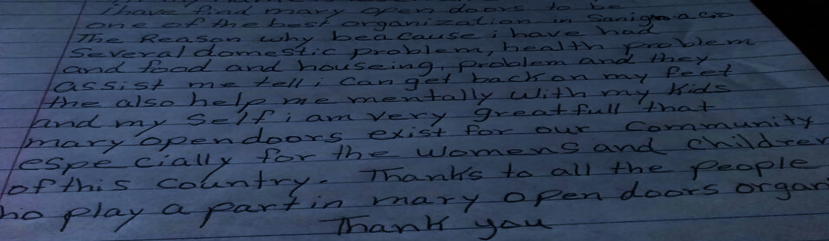 I have find mary open doors to be
one of the best organization in San ignacio
The Reason why beacause i have had
Several domestic problem, health problem
and food and houseing, problem and they
assist me tell i can get back on my feet
the also help me mentally with my kids
and my Self i am very greatfull that
mary open doors exist for our Community
espe cially for the womens and children
of this country. Thanks to all the people
ho play a part in mary open doors organ
Thank you